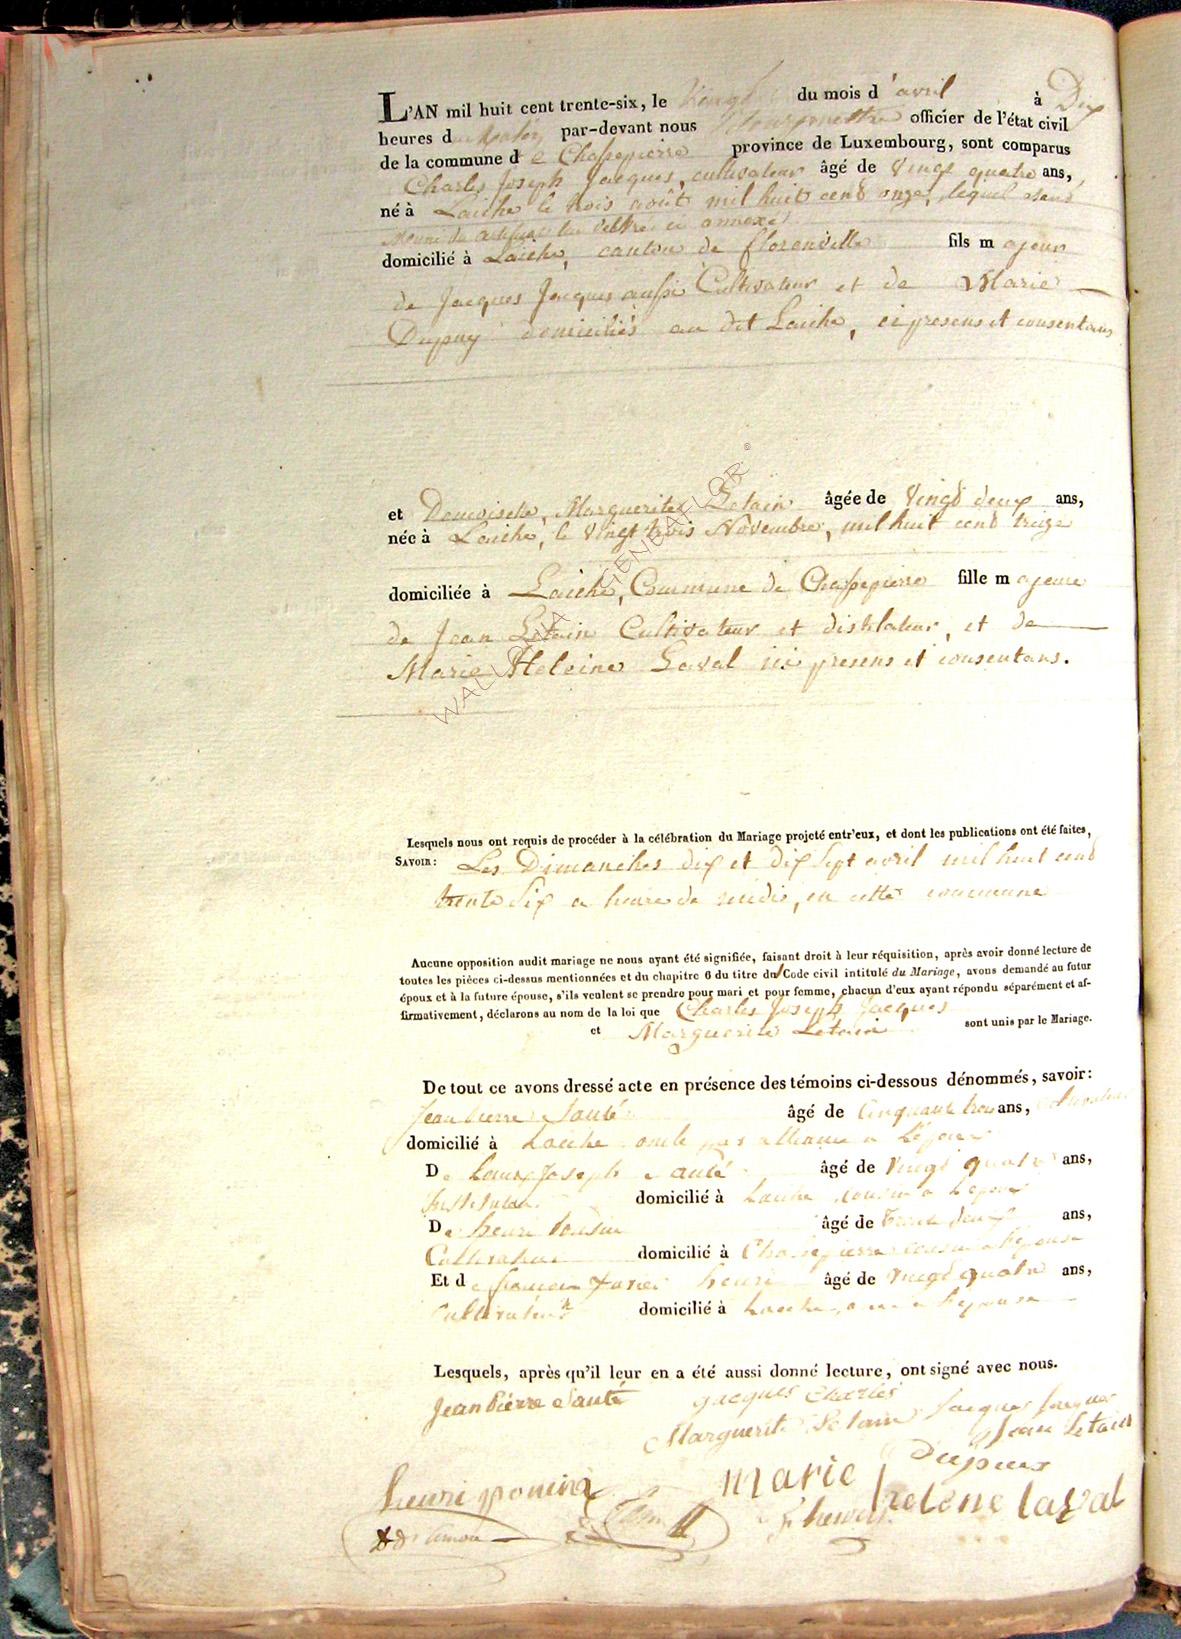 L'AN mil huit cent trente-six, le vingt du mois d'avril à Dix
heures du matin, par-devant nous Bourgmestre officier de l'état civil
de la commune de Chassepierre province de Luxembourg, sont comparus
Charles Joseph Jacques, cultivateur âgé de Vingt quatre ans,
né à Laiche le trois août mil huit cent onze, lequel etant
ci annexé
domicilié à Laiche, canton de florenville fils majeur
de Jacques Jacques aussi Cultivateur et de Marie
Dupuy domiciliés au dit Laiche, ci presens et consentans
et Demoiselle, Marguerite Letain âgée de Vingt deux ans,
née à Laiche, le Vingt trois Novembre, mil huit cent treize
domiciliée à Laiche, Commune de Chassepierre fille majeure
de Jean Letain Cultivateur et distilateur, et de
Marie Heleine Laval ici presens et consentans.
Lesquels nous ont requis de procéder à la célébration du Mariage projeté entr'eux, et dont les publications ont été faites,
SAVOIR: Les Dimanches dix et dix sept avril mil huit cent
trente Six a heure de midi, en cette commune
Aucune opposition audit mariage ne nous ayant été signifiée, faisant droit à leur réquisition, après avoir donné lecture de
toutes les pièces ci-dessus mentionnées et du chapitre 6 du titre du Code civil intitulé du Mariage, avons demandé au futur
époux et à la future épouse, s'ils veulent se prendre pour mari et pour femme, chacun d'eux ayant répondu séparément et af-
firmativement, déclarons au nom de la loi que Charles Joseph Jacques
et Marguerite Letain sont unis par le Mariage.
De tout ce avons dressé acte en présence des témoins ci-dessous dénommés, savoir:
Jean Pierre Santé âgé de Cinquante trois ans, Cultivateur
domicilié à Laiche oncle par alliance a L'epoux
De Louis Joseph Santé âgé de vingt quatre ans,
Instituteur domicilié à Laiche cousin a L'epoux
De henri Ponsin âgé de Trente deux ans,
Cultivateur domicilié à Chassepierre cousin a l'epouse
Et de francois Xavier henri âgé de vingt quatre ans,
Cultivateur domicilié à Laiche, ami a l'epouse
Lesquels, après qu'il leur en a été aussi donné lecture, ont signé avec nous.
Jean Pierre Santé Jacques Charles
Marguerite Letain Jacques Jacques
Jean Letain
Marie Dupuis
henri ponsin helene laval
WALLONIA GENEALOR ©